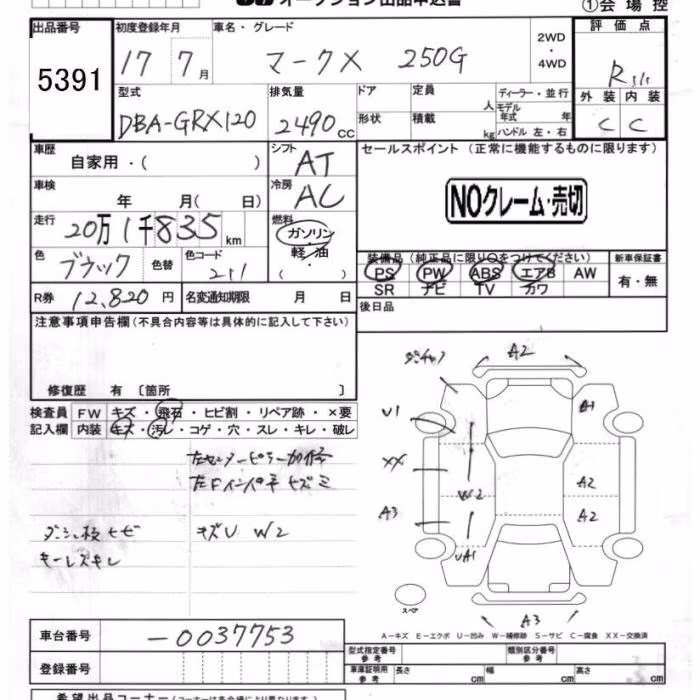 オークション出品申込書
①会場控
出品番号 初度登録年月 車名・グレード 2WD・4WD 評価点
5391 17 7月 マークX 250G R
外装 内装
C C
型式 排気量 ドア 定員 人 ディーラー・並行
モデル年式 年
DBA-GRX120 2490cc 形状 積載 kg ハンドル 左・右
車歴 シフト セールスポイント (正常に機能するものに限ります)
自家用・( ) AT
車検 冷房 NOクレーム・売切
年 月( 日) AC
走行 燃料
20万1千835km ガソリン
軽油
( ・ )
色 色替 色コード 装備品(純正品に限り○をつけてください) 新車保証書
ブラック 211 PS PW ABS エアB AW 有・無
SR ナビ TV カワ
R券 12,820円 名変通知期限 月 日 後日品
注意事項申告欄(不具合内容等は具体的に記入して下さい)
修復歴 有〔箇所 〕
検査員 FW キズ・飛石・ヒビ割・リペア跡・×要
記入欄 内装 キズ・汚レ・コゲ・穴・スレ・キレ・破レ
左センターピラー
キズU W2
A2
U1 A1
XX W2 A2
A3 A2
UA1
スペア
A3
A－キズ E－エクボ U－凹み W－補修跡 S－サビ C－腐食 XX－交換済
車台番号 -0037753
型式指定番号 参考 類別区分番号 参考
登録番号 車庫証明用 参考 長さ cm 幅 cm 高さ cm
希望出品コーナー